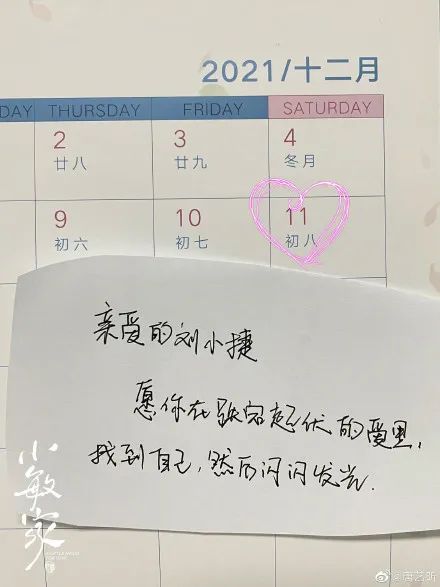 2021/十二月
DAY THURSDAY FRIDAY SATURDAY
2 3 4
廿八 廿九 冬月
9 10 11
初六 初七 初八
亲爱的刘小捷
愿你在跌宕起伏的爱里,
找到自己,然后闪闪发光.
小敏家
@唐艺昕